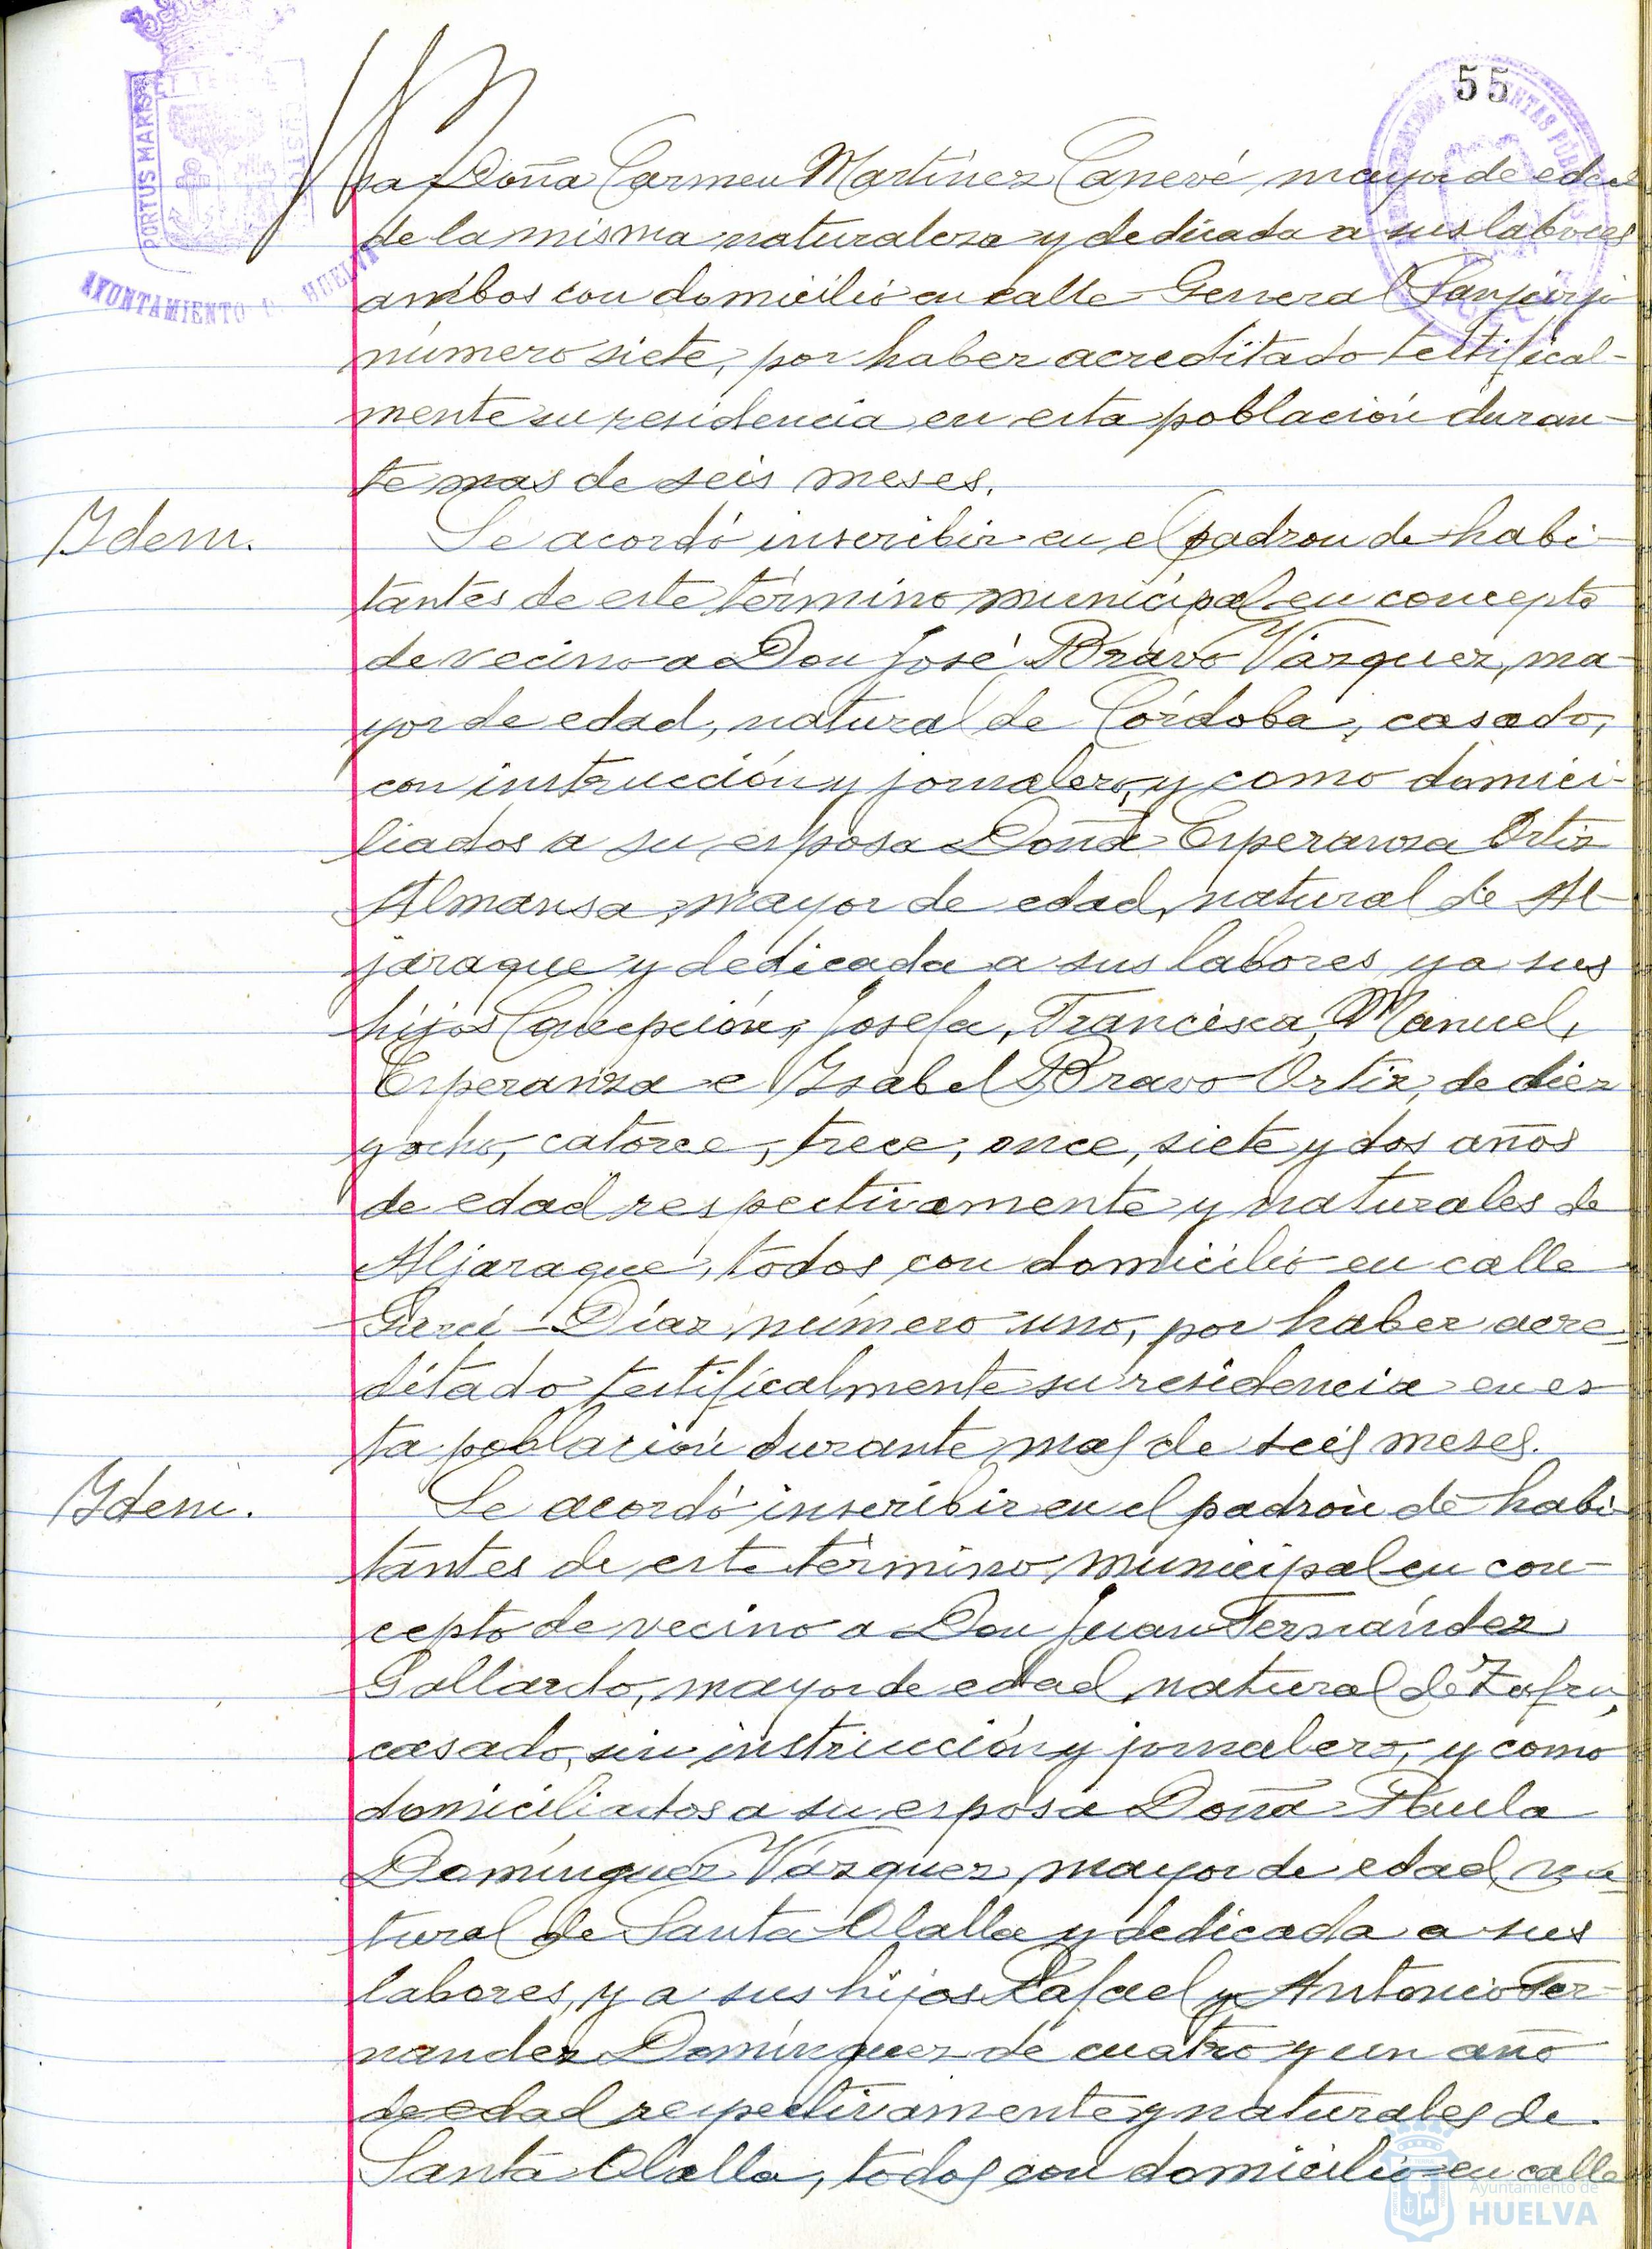 55
PORTUS MARIS ET TERRAE CUSTODIA
AYUNTAMIENTO DE HUELVA
sa Doña Carmen Martínez Canevé, mayor de edad
de la misma naturaleza y dedicada a sus labores
ambos con domicilio en calle General Sanjurjo
número siete, por haber acreditado testifical-
mente su residencia en esta población duran-
te mas de seis meses.
Ydem. Se acordó inscribir en el padron de habi-
tantes de este término municipal en concepto
de vecino a Don José Bravo Vázquez, ma-
yor de edad, natural de Córdoba, casado,
con instrucción y jornalero, y como domici-
liados a su esposa Doña Esperanza Ortiz
Almansa, mayor de edad, natural de Al-
jaraque y dedicada a sus labores y a sus
hijos Concepción, Josefa, Francisca, Manuel,
Esperanza e Ysabel Bravo Ortiz, de diez
y ocho, catorce, trece, once, siete y dos años
de edad respectivamente y naturales de
Aljaraque, todos con domicilio en calle
Garci-Díaz número uno, por haber acre-
ditado testificalmente su residencia en es-
ta población durante mas de seis meses.
Ydem. Se acordó inscribir en el padrón de habi-
tantes de este término municipal en con-
cepto de vecino a Don Juan Fernández
Gallardo, mayor de edad, natural de Zafra,
casado, sin instrucción y jornalero, y como
domiciliados a su esposa Doña Paula
Domínguez Vázquez, mayor de edad, na-
tural de Santa Olalla y dedicada a sus
labores, y a sus hijos Rafael y Antonio Fer-
nandez Domínguez de cuatro y un año
de edad respectivamente y naturales de
Santa Olalla, todos con domicilio en calle
Ayuntamiento de
HUELVA